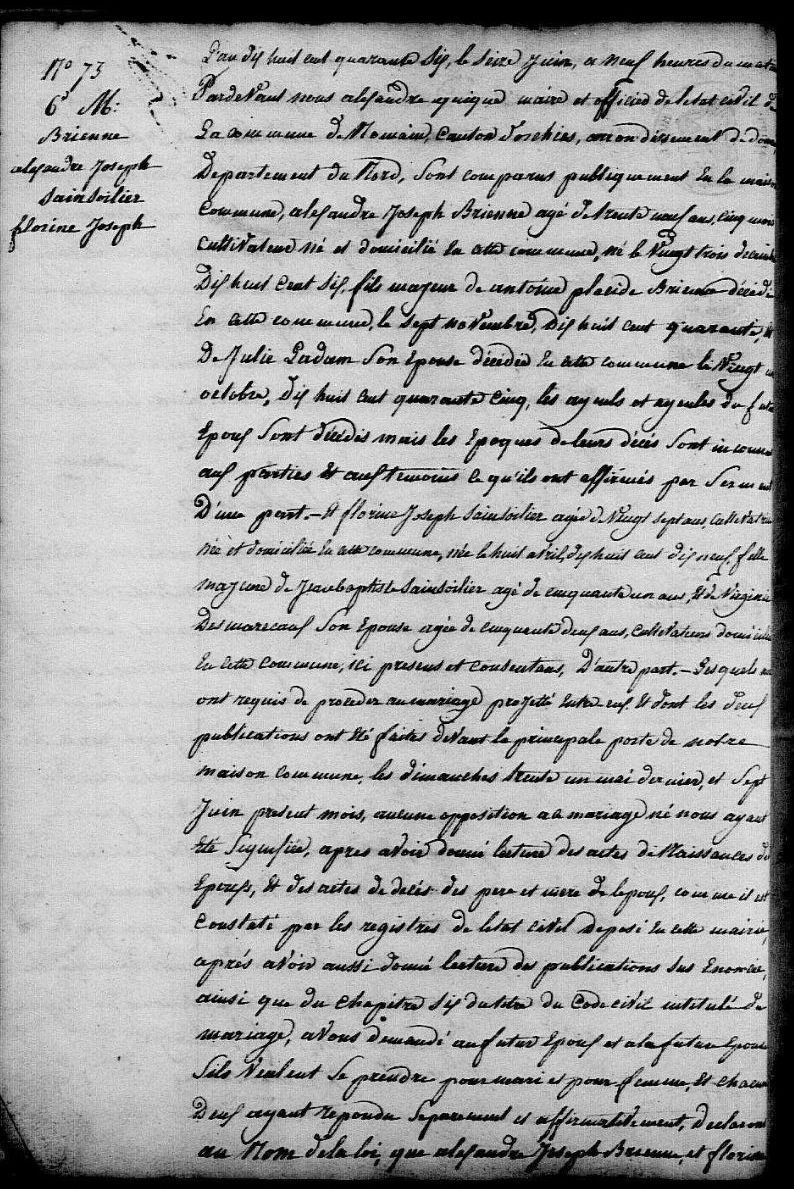 N° 73
6e M.
Brienne
alexandre Joseph
Sainsoilier
florine Joseph
L'an dix huit cent quarante six, le seize Juin, a neuf heures du matin
Pardevant nous alexandre quique maire et officier de letat civil de
La commune de Nomain, Canton Dorchies, arrondissement de dou
Departement du Nord, Sont comparus publiquement En la maison
Commune, alexandre Joseph Brienne agé de trente neuf ans, cinq mois
cultivateur né et domicilié En cette commune, né le Vingt trois decembre
Dix huit Cent Six, fils majeur de antoine placide Brienne décédé
En cette commune, le sept novembre, Dix huit cent quarante, et
De Julie Ladam Son Epouse décédée En cette commune le Vingt un
octobre, dix huit cent quarante cinq, les ayeuls et ayeules du futur
Epoux Sont décédés mais les Epoques de leurs décès Sont inconnues
aux parties Et aux temoins ce qu'ils ont affirmés par Serment
D'une part. – Et florine Joseph Sainsoilier agée de Vingt sept ans, Cultivatrice
née et domiciliée En cette commune, née le huit avril, dix huit cent dix neuf, fille
majeure de Jeanbaptiste Sainsoilier agé de cinquante un ans, Et de Virginie
Desmarecaux Son Epouse agée de cinquante deux ans, Cultivateurs domiciliés
En cette Commune, ici presens et consentans, D'autre part. – Lesquels nous
ont requis de proceder au mariage projeté Entre eux Et dont les deux
publications ont Eté faites devant la principale porte de notre
maison Commune, les dimanches trente un mai dernier, et Sept
Juin present mois, aucune opposition a ce mariage né nous ayant
Eté Signifiée, apres avoir donné lecture des actes de Naissances des
Epoux, Et des actes de decés des pere et mere de lepoux, comme il est
Constaté par les registres de letat civil deposé En cette mairie,
aprés avoir aussi donné lecture des publications Sus Enoncée,
ainsi que du Chapitre Six du titre du Code civil intitulé de
mariage, avons demandé au futur Epoux et a la future Epouse
Sils Veulent Se prendre pour mari et pour femme, Et chacun
Deux ayant repondu Separement et affirmativement, declarons
au Nom de la loi, que alexandre Joseph Brienne, et florine